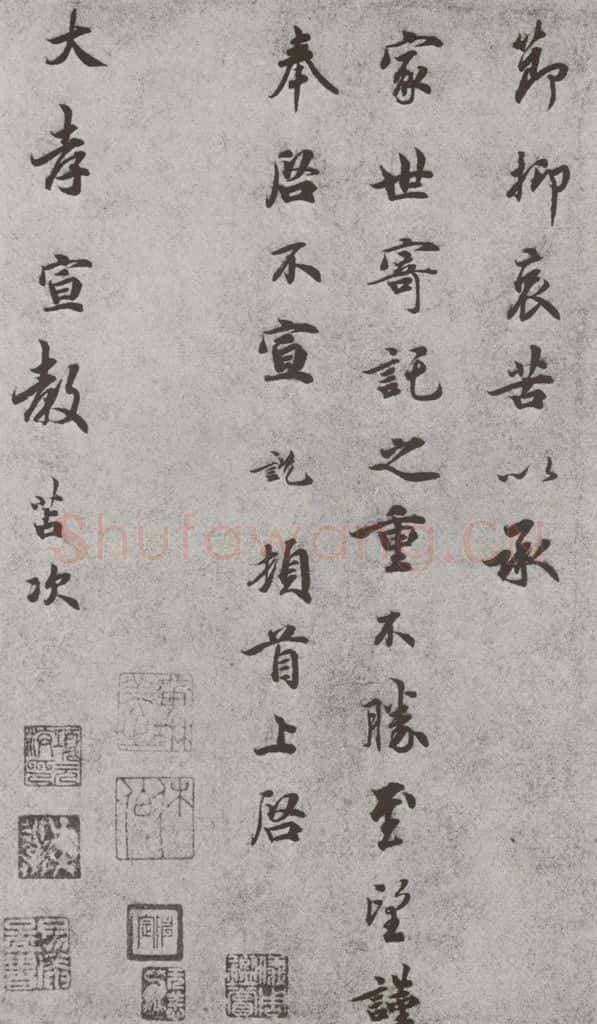 節抑哀苦以承
家世寄託之重不勝至望謹
奉啓不宣 説 頓首上啓
大孝宣教 苫次
Shufawang.cn